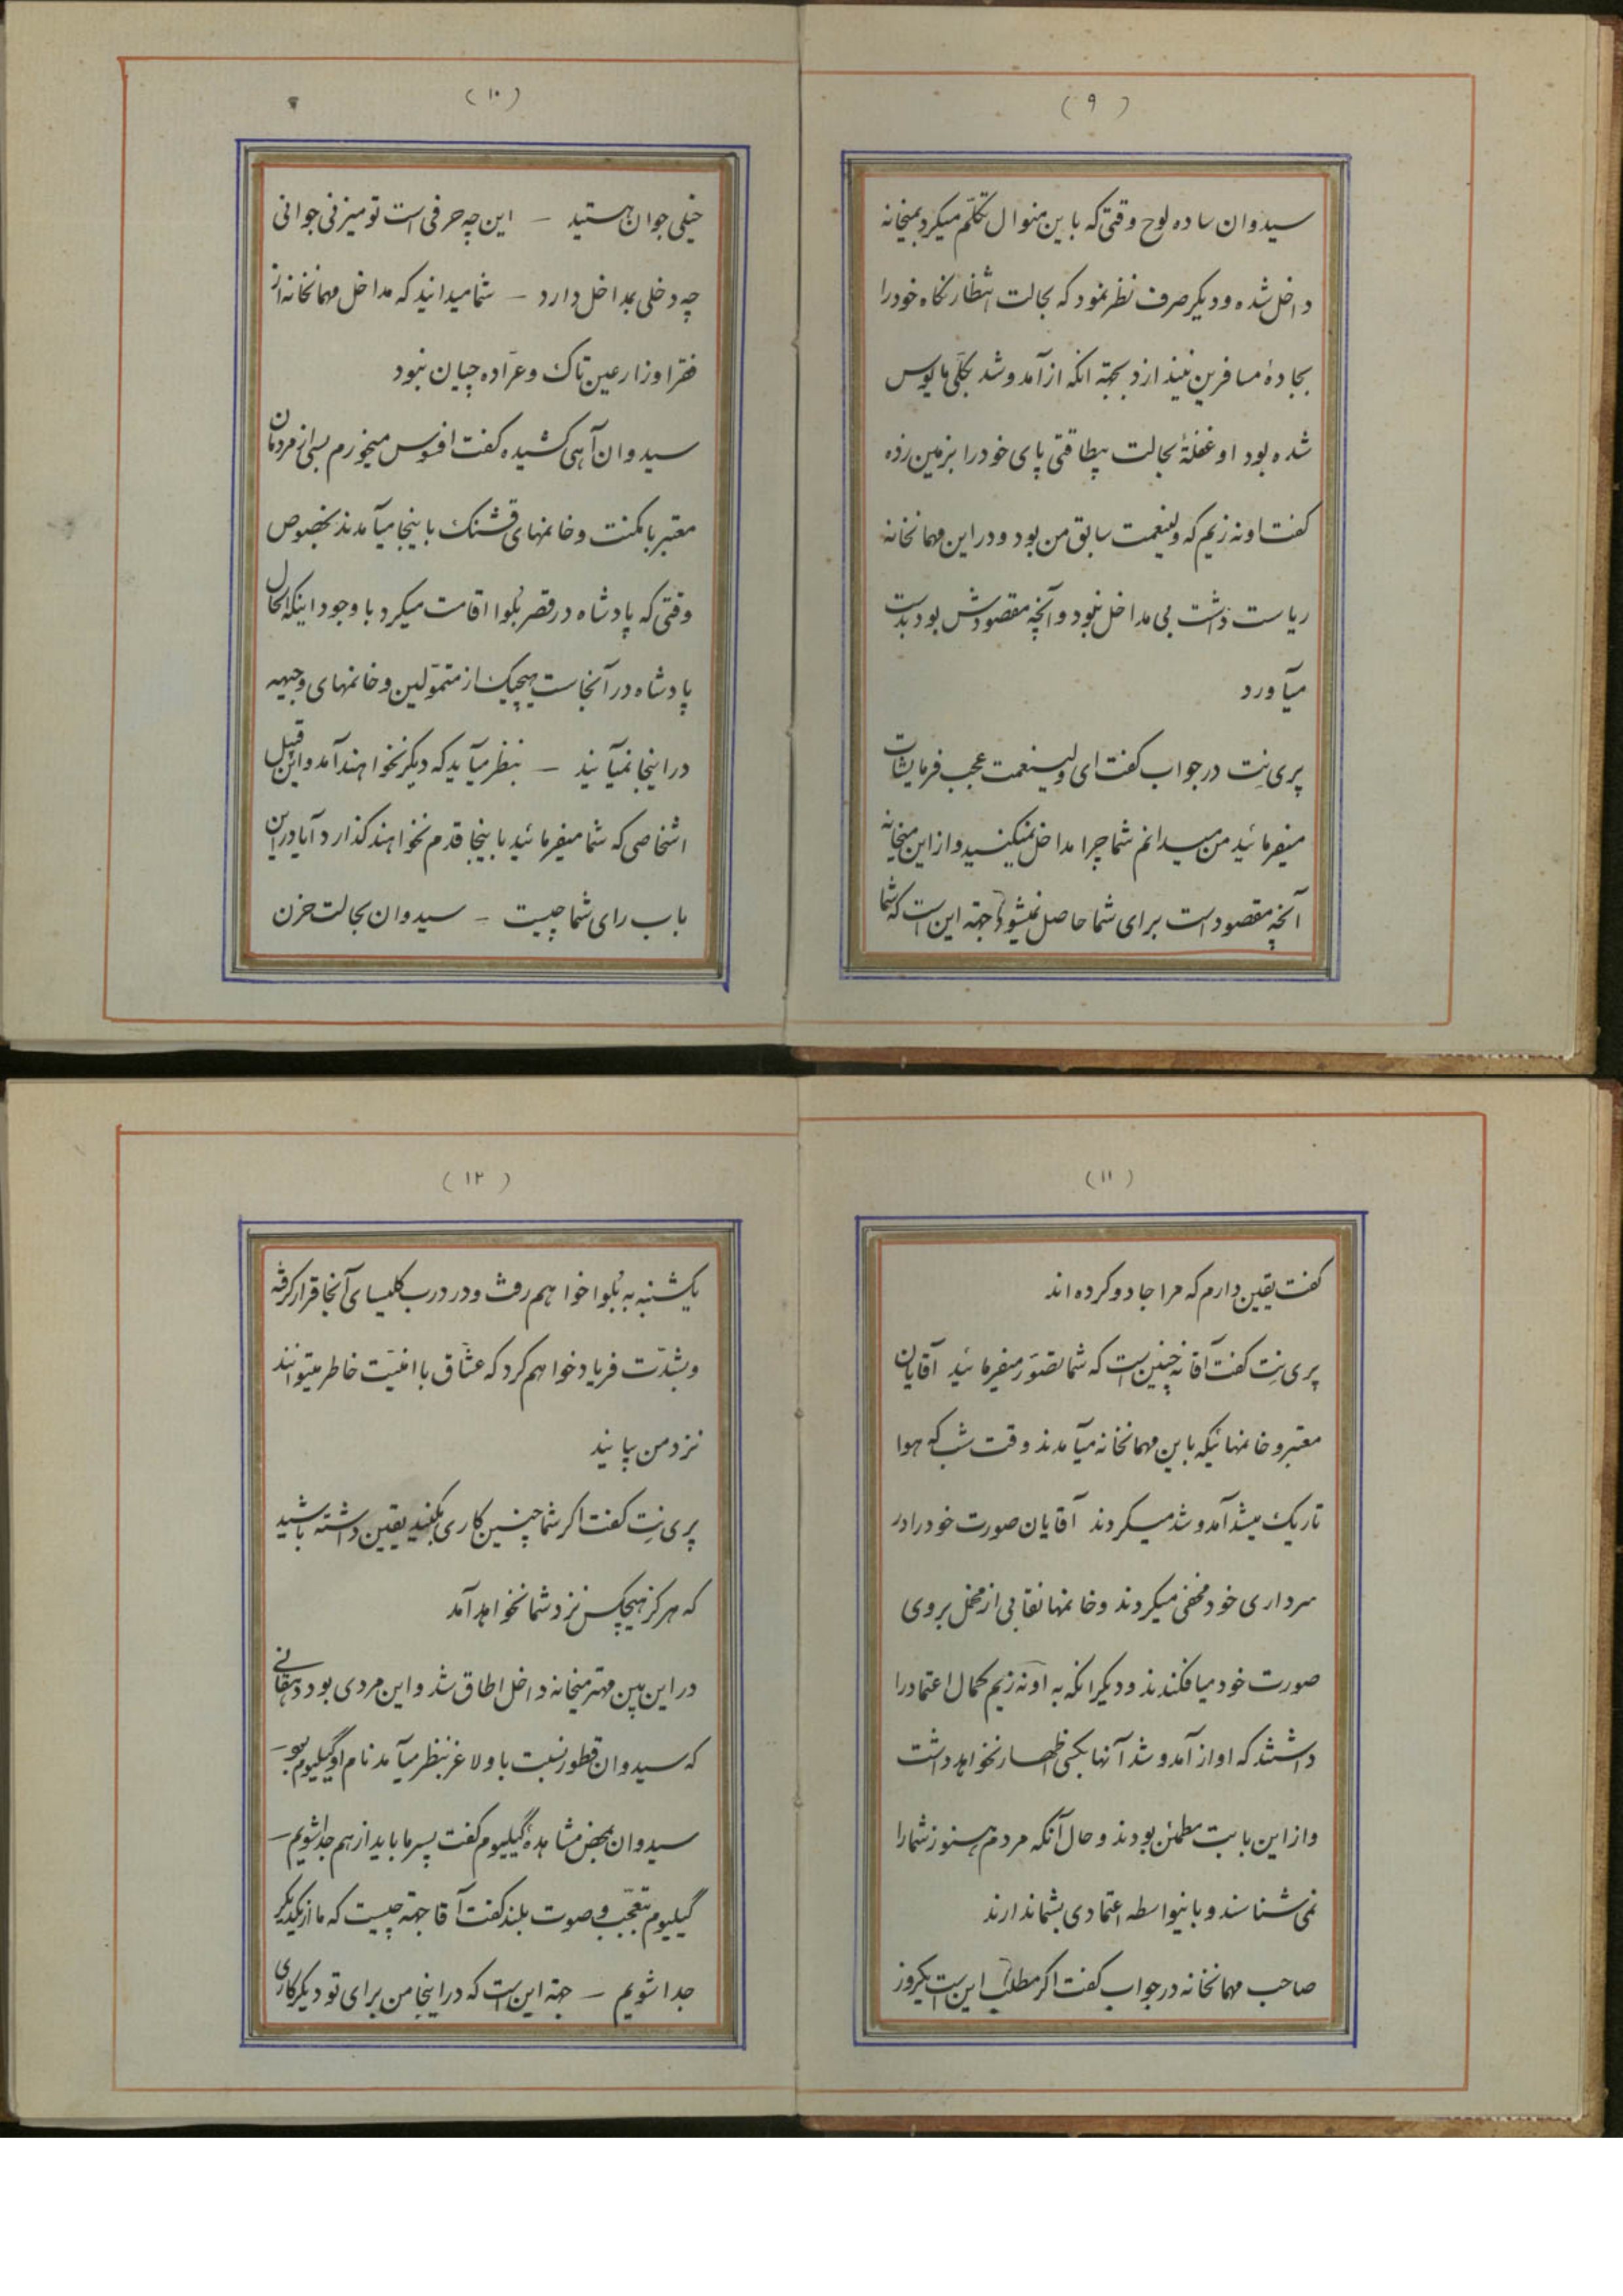 (۹)
سیدوان ساده لوح وقتی که باین منوال تکلّم میکرد بمیخانه
داخل شده و دیکر صرف نظر نمود که بحالت انتظار نکاه خود را
بجادهٔ مسافرین بیندازد بجهة انکه از آمد و شد بکلّی مایوس
شده بود او غفلةً بحالت بیطاقتی پای خود را بزمین زده
کفت اونه زیم که ولینعمت سابق من بود و در این مهمانخانه
ریاست داشت بی مداخل نبود و آنچه مقصودش بود بدست
میآورد
پری نِت در جواب کفت ای ولینعمت عجب فرمایشات
میفرمائید من میدانم شما چرا مداخل نمیکنید و از این میخانه
آنچه مقصود است برای شما حاصل نمیشود جهة این است که شما
(۱۰)
خیلی جوان هستید – این چه حرفی است تو میزنی جوانی
چه دخلی بمداخل دارد – شما میدانید که مداخل مهمانخانه از
فقرا و زارعین تاک و عرّاده چیان نبود
سیدوان آهی کشیده کفت افسوس میخورم بسی از مردمان
معتبر با مکنت و خانمهای قشنک باینجا میآمدند بخصوص
وقتی که پادشاه در قصر بُلوا اقامت میکرد با وجود اینکه الحال
پادشاه در آنجاست هیچیک از متموّلین و خانمهای وجیهه
در اینجا نمیآیند – بنظر میآید که دیکر نخواهند آمد و این قبیل
اشخاصی که شما میفرمائید باینجا قدم نخواهند کذارد آیا در این
باب رای شما چیست – سیدوان بحالت حزن
(۱۱)
کفت یقین دارم که مرا جادو کرده اند
پری نِت کفت آقا نه چنین است که شما تصوّر میفرمائید آقایان
معتبر و خانمهائیکه باین مهمانخانه میآمدند وقت شب که هوا
تاریک میشد آمد و شد میکردند آقایان صورت خود را در
سرداری خود مخفی میکردند و خانمها نقابی از مخمل بروی
صورت خود میافکندند و دیکر انکه به اونه زیم کمال اعتماد را
داشتند که او از آمد و شد آنها بکسی اظهار نخواهد داشت
و از این بابت مطمئن بودند و حال آنکه مردم هنوز شما را
نمی شناسند و باینواسطه اعتمادی بشما ندارند
صاحب مهمانخانه در جواب کفت اکر مطلب این است یکروز
(۱۲)
یکشنبه به بُلوا خواهم رفت و در درب کلیسای آنجا قرار کرفته
و بشدّت فریاد خواهم کرد که عشّاق با امنیّت خاطر میتوانند
نزد من بیایند
پری نِت کفت اکر شما چنین کاری بکنید یقین داشته باشید
که هرکز هیچکس نزد شما نخواهد آمد
در این بین مهتر میخانه داخل اطاق شد و این مردی بود دهقانی
که سیدوان قطور نسبت باو لاغر بنظر میآمد نام او کیلیوم بود –
سیدوان بمحض مشاهدهٔ کیلیوم کفت پسر ما باید از هم جدا شویم –
کیلیوم بتعجّب و صوت بلند کفت آقا جهة چیست که ما از یکدیکر
جدا شویم – جهة این است که در اینجا من برای تو دیکر کاری